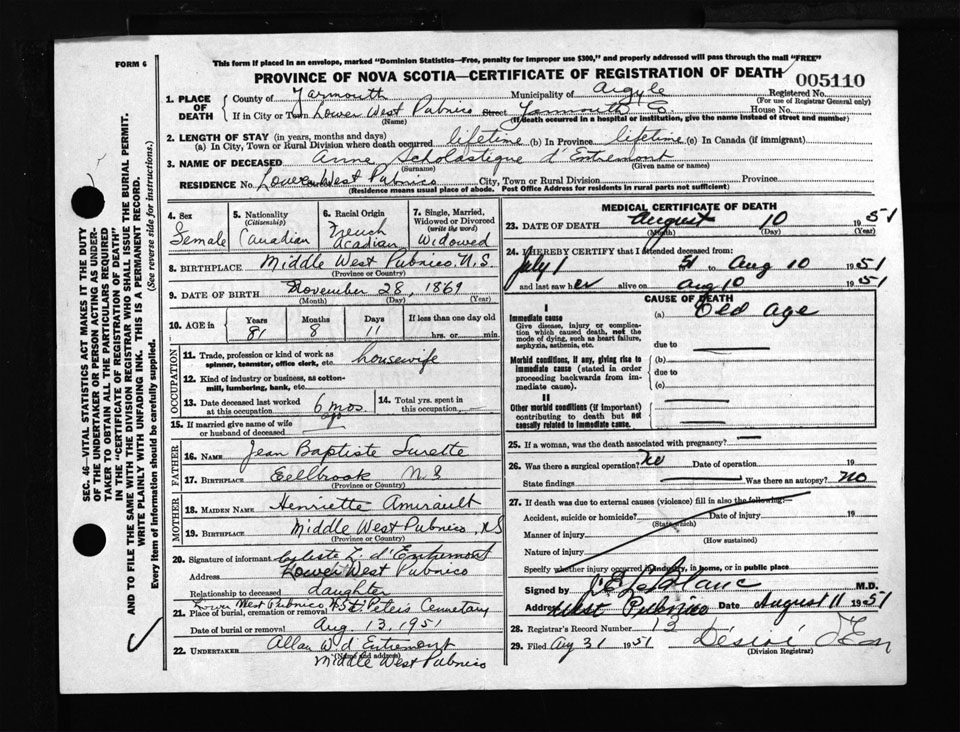 FORM 6
This form if placed in an envelope, marked "Dominion Statistics—Free, penalty for improper use $300," and properly addressed will pass through the mail "FREE"
PROVINCE OF NOVA SCOTIA—CERTIFICATE OF REGISTRATION OF DEATH
005110
1. PLACE OF DEATH
County of Yarmouth Municipality of Argyle Registered No.
(For use of Registrar General only)
If in City or Town Lower West Pubnico Street Yarmouth Co. House No.
(Name) (If death occurred in a hospital or institution, give the name instead of street and number)
2. LENGTH OF STAY (in years, months and days)
(a) In City, Town or Rural Division where death occurred lifetime (b) In Province lifetime (c) In Canada (if immigrant)
3. NAME OF DECEASED Anne Scholastique d'Entremont
(Surname) (Given name or names)
RESIDENCE No. Lower West Pubnico City, Town or Rural Division Province
(Residence means usual place of abode. Post Office Address for residents in rural parts not sufficient)
4. Sex Female
5. Nationality (Citizenship) Canadian
6. Racial Origin French Acadian
7. Single, Married, Widowed or Divorced (write the word) Widowed
8. BIRTHPLACE Middle West Pubnico, N.S.
(Province or Country)
9. DATE OF BIRTH November 28, 1869
(Month) (Day) (Year)
10. AGE in Years Months Days If less than one day
81 8 11 hrs. or min.
OCCUPATION
11. Trade, profession or kind of work as spinner, teamster, office clerk, etc. housewife
12. Kind of industry or business, as cotton-mill, lumbering, bank, etc.
13. Date deceased last worked at this occupation 6 mos. ago
14. Total yrs. spent in this occupation —
15. If married give name of wife or husband of deceased
FATHER
16. Name Jean Baptiste Surette
17. Birthplace Eelbrook N S
(Province or Country)
MOTHER
18. MAIDEN NAME Henriette Amirault
19. BIRTHPLACE Middle West Pubnico, NS
(Province or Country)
20. Signature of informant Celeste L. d'Entremont
Address Lower West Pubnico
Relationship to deceased daughter
21. Place of burial, cremation or removal Lower West Pubnico NS St Peter's Cemetary
Date of burial or removal Aug. 13, 1951
22. UNDERTAKER Allan W. d'Entremont
(Name and address)
Middle West Pubnico
MEDICAL CERTIFICATE OF DEATH
23. DATE OF DEATH August 10 1951
(Month) (Day) (Year)
24. I HEREBY CERTIFY that I attended deceased from
July 1 51 to Aug 10 1951
and last saw her alive on Aug 10 1951
CAUSE OF DEATH
I
Immediate cause
Give disease, injury or complication which caused death, not the mode of dying, such as heart failure, asphyxia, asthenia, etc.
(a) Old Age
due to
Morbid conditions, if any, giving rise to immediate cause (stated in order proceeding backwards from immediate cause).
(b)
due to
(c)
II
Other morbid conditions (if important) contributing to death but not causally related to immediate cause.
25. If a woman, was the death associated with pregnancy? —
26. Was there a surgical operation? No Date of operation 19
State findings Was there an autopsy? no
27. If death was due to external causes (violence) fill in also the following:—
Accident, suicide or homicide? Date of injury 19
(State which)
Manner of injury
(How sustained)
Nature of injury
Specify whether injury occurred in industry, in home, or in public place
Signed by LeBlanc M.D.
Address West Pubnico Date August 11 1951
28. Registrar's Record Number 13
29. Filed Aug 31 1951 Désiré
(Division Registrar)
SEC. 46—VITAL STATISTICS ACT MAKES IT THE DUTY
OF THE UNDERTAKER OR PERSON ACTING AS UNDER-
TAKER TO OBTAIN ALL THE PARTICULARS REQUIRED
IN THE "CERTIFICATE OF REGISTRATION OF DEATH"
AND TO FILE THE SAME WITH THE DIVISION REGISTRAR WHO SHALL ISSUE THE BURIAL PERMIT.
WRITE PLAINLY WITH UNFADING INK. THIS IS A PERMANENT RECORD.
Every item of information should be carefully supplied. (See reverse side for instructions.)